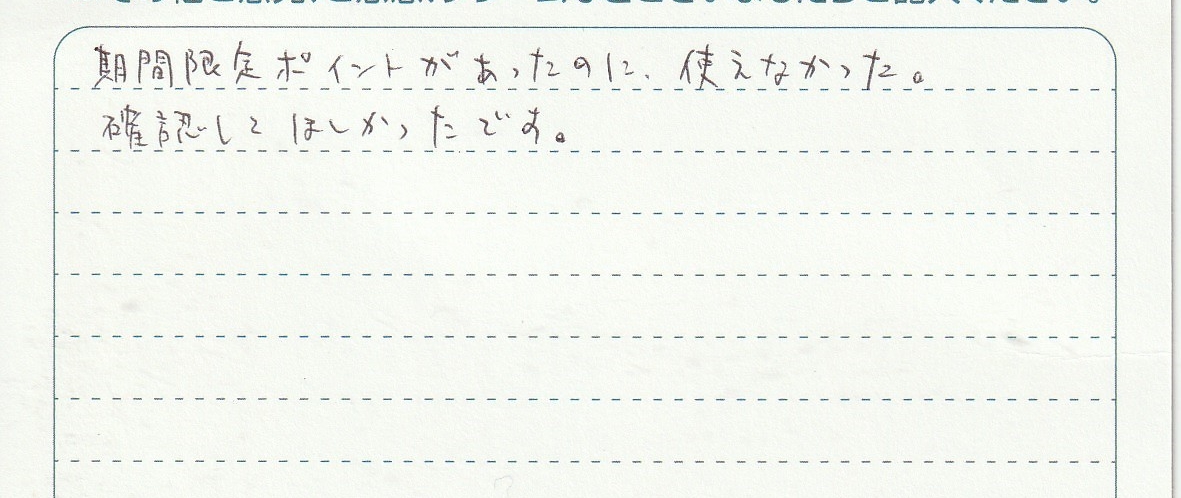 期間限定ポイントがあったのに、使えなかった。
確認してほしかったです。